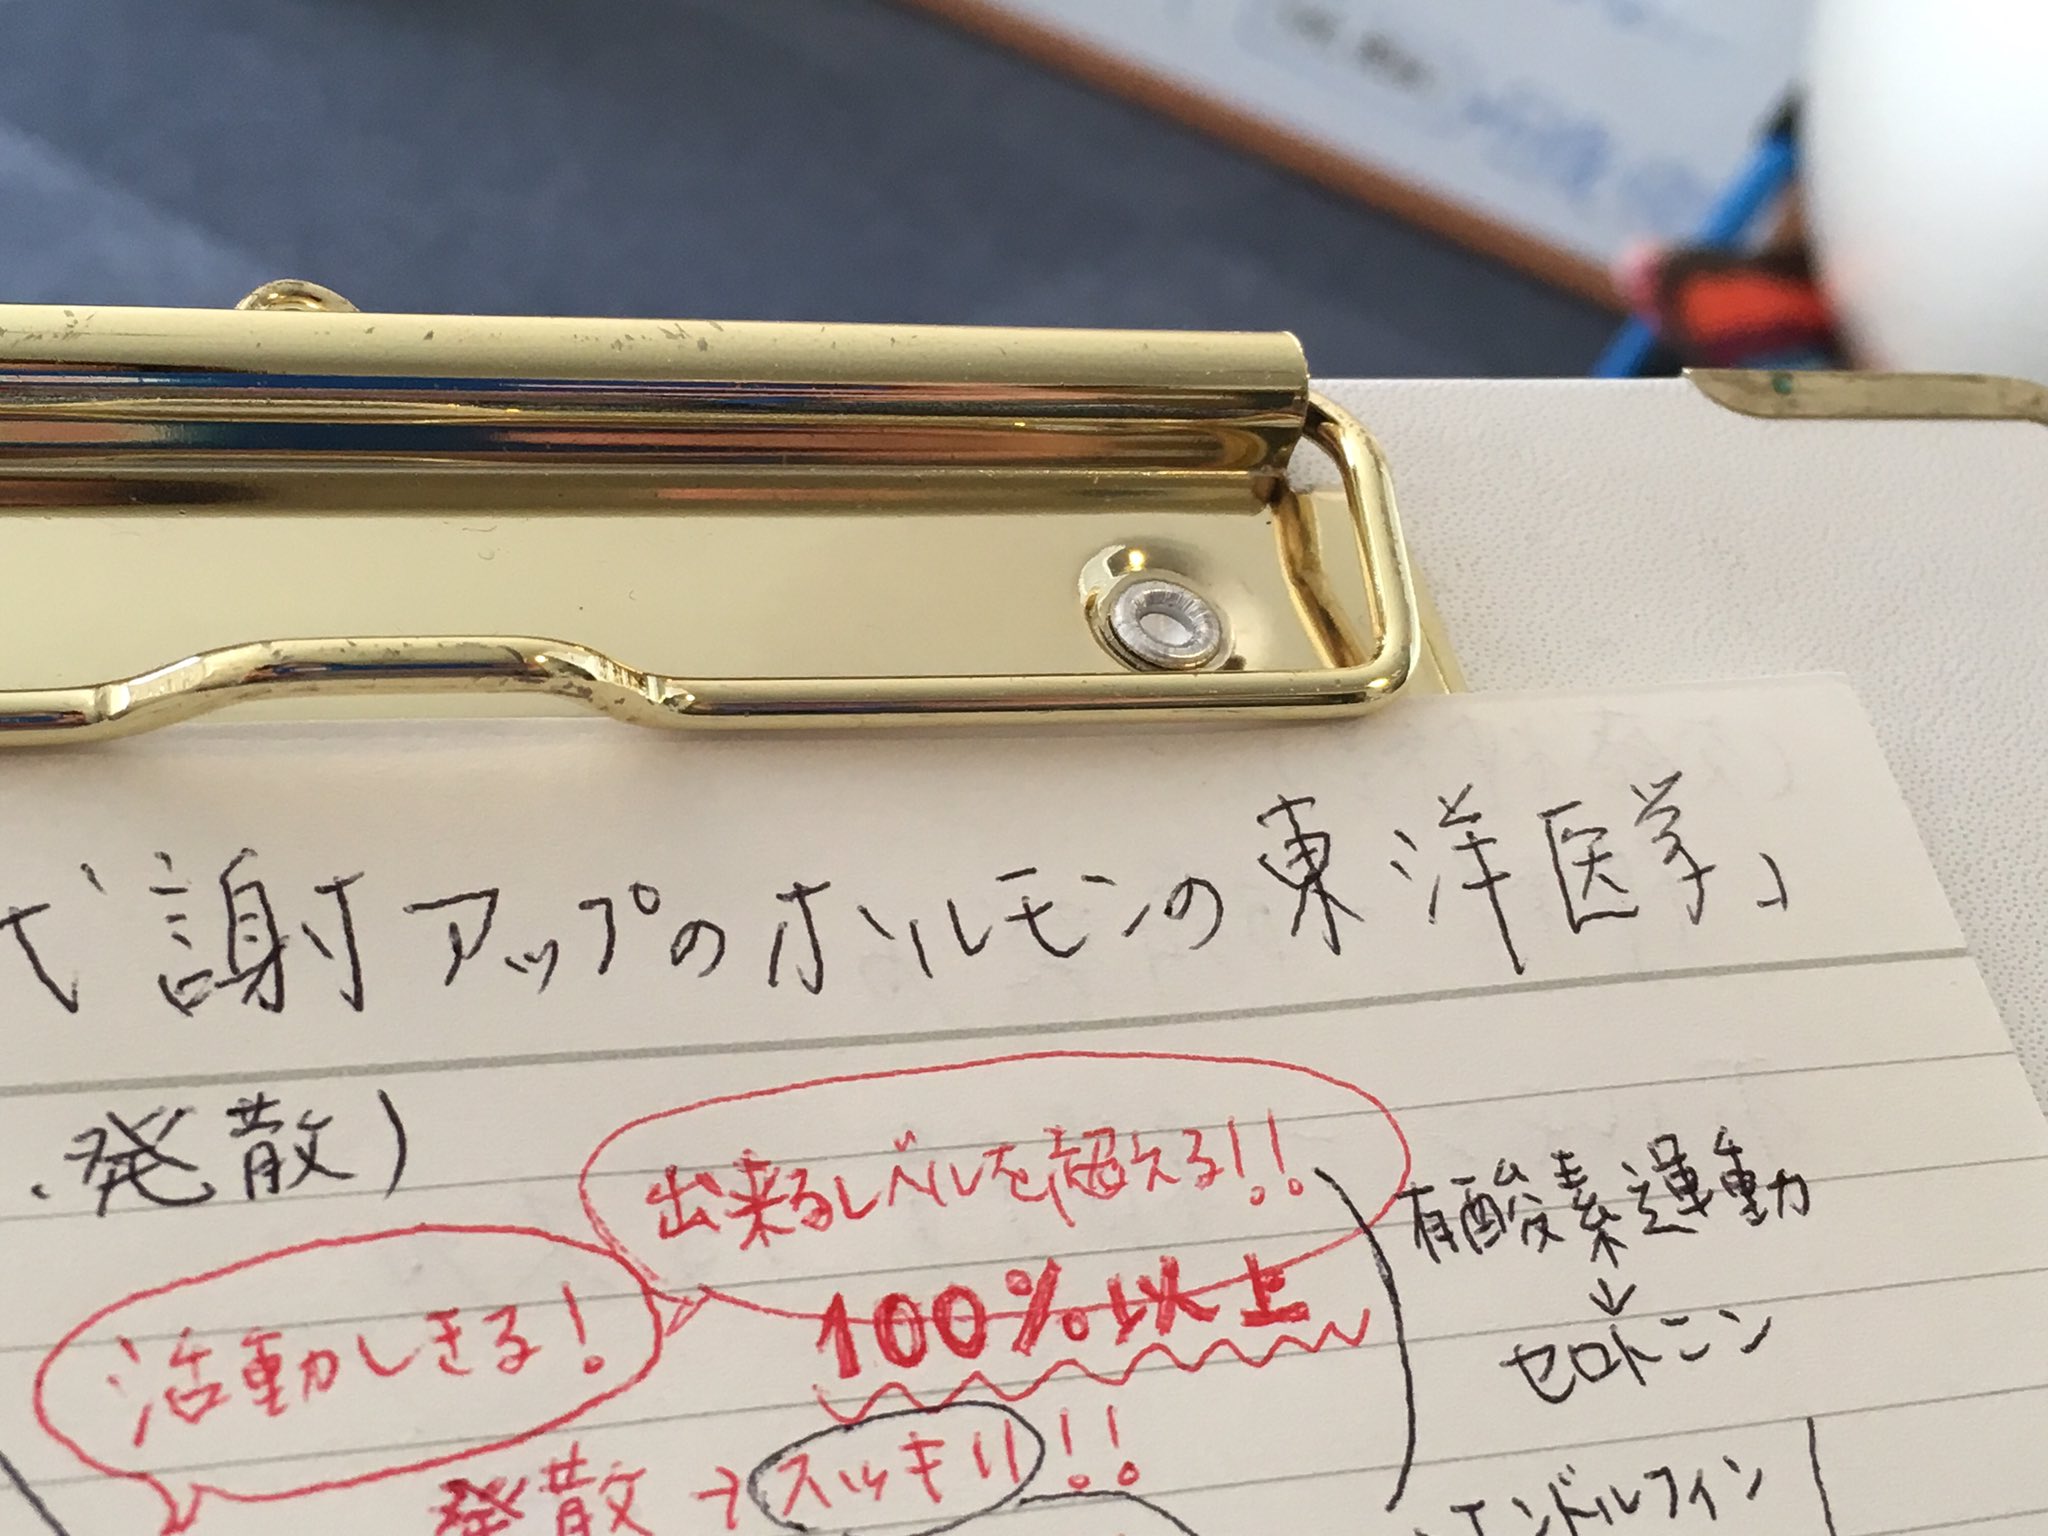 代謝アップのホルモンの東洋医学」
.発散)
出来るレベルを超える!!
100%以上
有酸素運動
↓
セロトニン
活動しきる!
発散→スッキリ!!
エンドルフィン